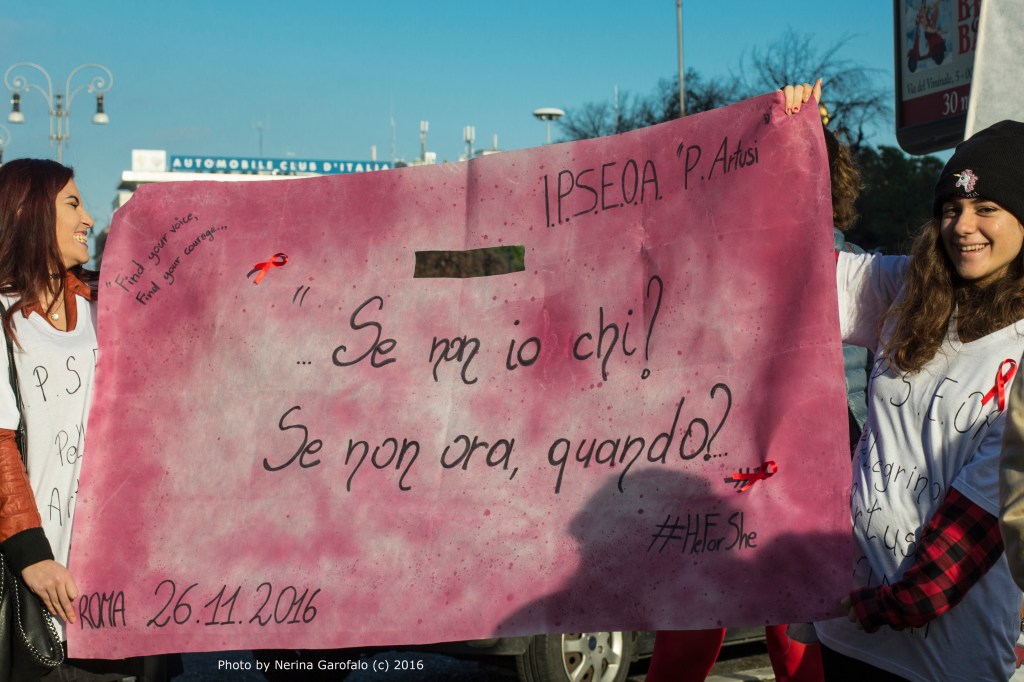 AUTOMOBILE CLUB D'ITALIA
Via del Viminale, 5
30 m
I.P.S.E.O.A. "P. Artusi
"Find your voice,
Find your courage...
"
... Se non io chi?
Se non ora, quando?...
#HeForShe
ROMA 26.11.2016
P.S.
Ar
S.E.O.A
Photo by Nerina Garofalo (c) 2016